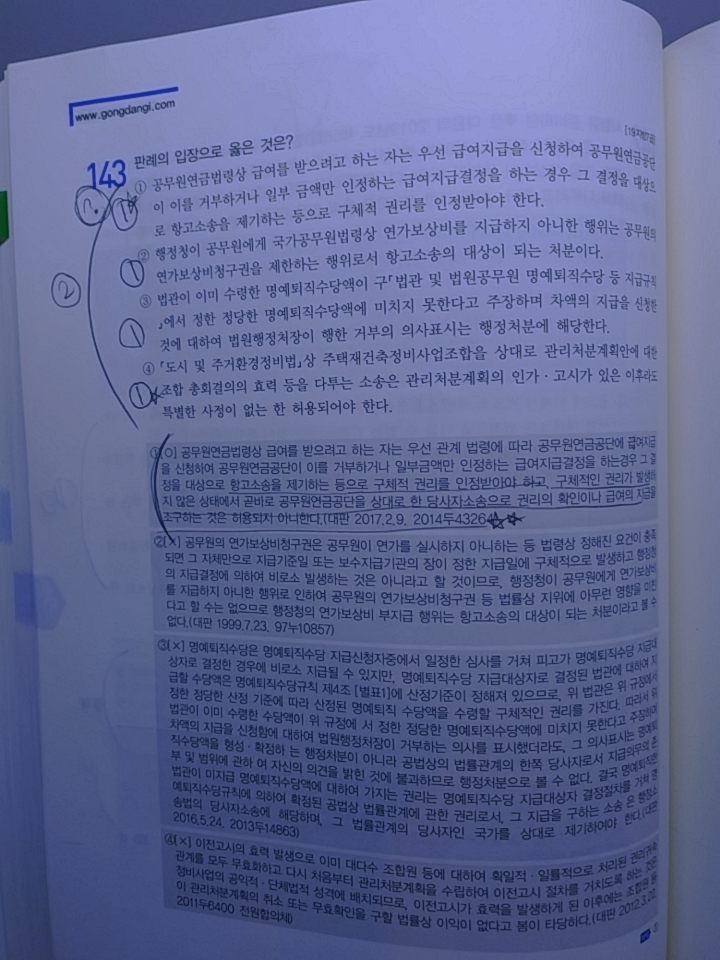 www.gongdangi.com
143 판례의 입장으로 옳은 것은?
① 공무원연금법령상 급여를 받으려고 하는 자는 우선 급여지급을 신청하여 공무원연금공단
이 이를 거부하거나 일부 금액만 인정하는 급여지급결정을 하는 경우 그 결정을 대상으
로 항고소송을 제기하는 등으로 구체적 권리를 인정받아야 한다.
② 행정청이 공무원에게 국가공무원법령상 연가보상비를 지급하지 아니한 행위는 공무원의
연가보상비청구권을 제한하는 행위로서 항고소송의 대상이 되는 처분이다.
③ 법관이 이미 수령한 명예퇴직수당액이 구「법관 및 법원공무원 명예퇴직수당 등 지급규칙
」에서 정한 정당한 명예퇴직수당액에 미치지 못한다고 주장하며 차액의 지급을 신청한
것에 대하여 법원행정처장이 행한 거부의 의사표시는 행정처분에 해당한다.
④ 「도시 및 주거환경정비법」상 주택재건축정비사업조합을 상대로 관리처분계획안에 대한
조합 총회결의의 효력 등을 다투는 소송은 관리처분계획의 인가·고시가 있은 이후라도
특별한 사정이 없는 한 허용되어야 한다.
①[○] 공무원연금법령상 급여를 받으려고 하는 자는 우선 관계 법령에 따라 공무원연금공단에 급여지급
을 신청하여 공무원연금공단이 이를 거부하거나 일부금액만 인정하는 급여지급결정을 하는경우 그 결
정을 대상으로 항고소송을 제기하는 등으로 구체적 권리를 인정받아야 하고, 구체적인 권리가 발생하
지 않은 상태에서 곧바로 공무원연금공단을 상대로 한 당사자소송으로 권리의 확인이나 급여의 지급을
조구하는 것은 허용되지 아니한다.(대판 2017.2.9, 2014두4326
②[×] 공무원의 연가보상비청구권은 공무원이 연가를 실시하지 아니하는 등 법령상 정해진 요건이 충족
되면 그 자체만으로 지급기준일 또는 보수지급기관의 장이 정한 지급일에 구체적으로 발생하고 행정청
의 지급결정에 의하여 비로소 발생하는 것은 아니라고 할 것이므로, 행정청이 공무원에게 연가보상비
를 지급하지 아니한 행위로 인하여 공무원의 연가보상비청구권 등 법률상 지위에 아무런 영향을 미친
다고 할 수는 없으므로 행정청의 연가보상비 부지급 행위는 항고소송의 대상이 되는 처분이라고 볼 수
없다.(대판 1999.7.23, 97누10857)
③[×] 명예퇴직수당은 명예퇴직수당 지급신청자중에서 일정한 심사를 거쳐 피고가 명예퇴직수당 지급대
상자로 결정한 경우에 비로소 지급될 수 있지만, 명예퇴직수당 지급대상자로 결정된 법관에 대하여 지
급할 수당액은 명예퇴직수당규칙 제4조 [별표1]에 산정기준이 정해져 있으므로, 위 법관은 위 규정에서
정한 정당한 산정 기준에 따라 산정된 명예퇴직 수당액을 수령할 구체적인 권리를 가진다. 따라서 위
법관이 이미 수령한 수당액이 위 규정에 서 정한 정당한 명예퇴직수당액에 미치지 못한다고 주장하여
차액의 지급을 신청함에 대하여 법원행정처장이 거부하는 의사를 표시했더라도, 그 의사표시는 명예퇴
직수당액을 형성·확정하 는 행정처분이 아니라 공법상의 법률관계의 한쪽 당사자로서 지급의무의 존
부 및 범위에 관하 여 자신의 의견을 밝힌 것에 불과하므로 행정처분으로 볼 수 없다. 결국 명예퇴직한
법관이 미지급 명예퇴직수당액에 대하여 가지는 권리는 명예퇴직수당 지급대상자 결정절차를 거쳐 명
예퇴직수당규칙에 의하여 확정된 공법상 법률관계에 관한 권리로서, 그 지급을 구하는 소송 은 행정소
송법의 당사자소송에 해당하며, 그 법률관계의 당사자인 국가를 상대로 제기하여야 한다.(대판
2016.5.24, 2013두14863)
④[×] 이전고시의 효력 발생으로 이미 대다수 조합원 등에 대하여 획일적·일률적으로 처리된 권리귀속
관계를 모두 무효화하고 다시 처음부터 관리처분계획을 수립하여 이전고시 절차를 거치도록 하는 것은
정비사업의 공익적·단체법적 성격에 배치되므로, 이전고시가 효력을 발생하게 된 이후에는 조합원 등
이 관리처분계획의 취소 또는 무효확인을 구할 법률상 이익이 없다고 봄이 타당하다.(대판 2012.3.22,
2011두6400 전원합의체)